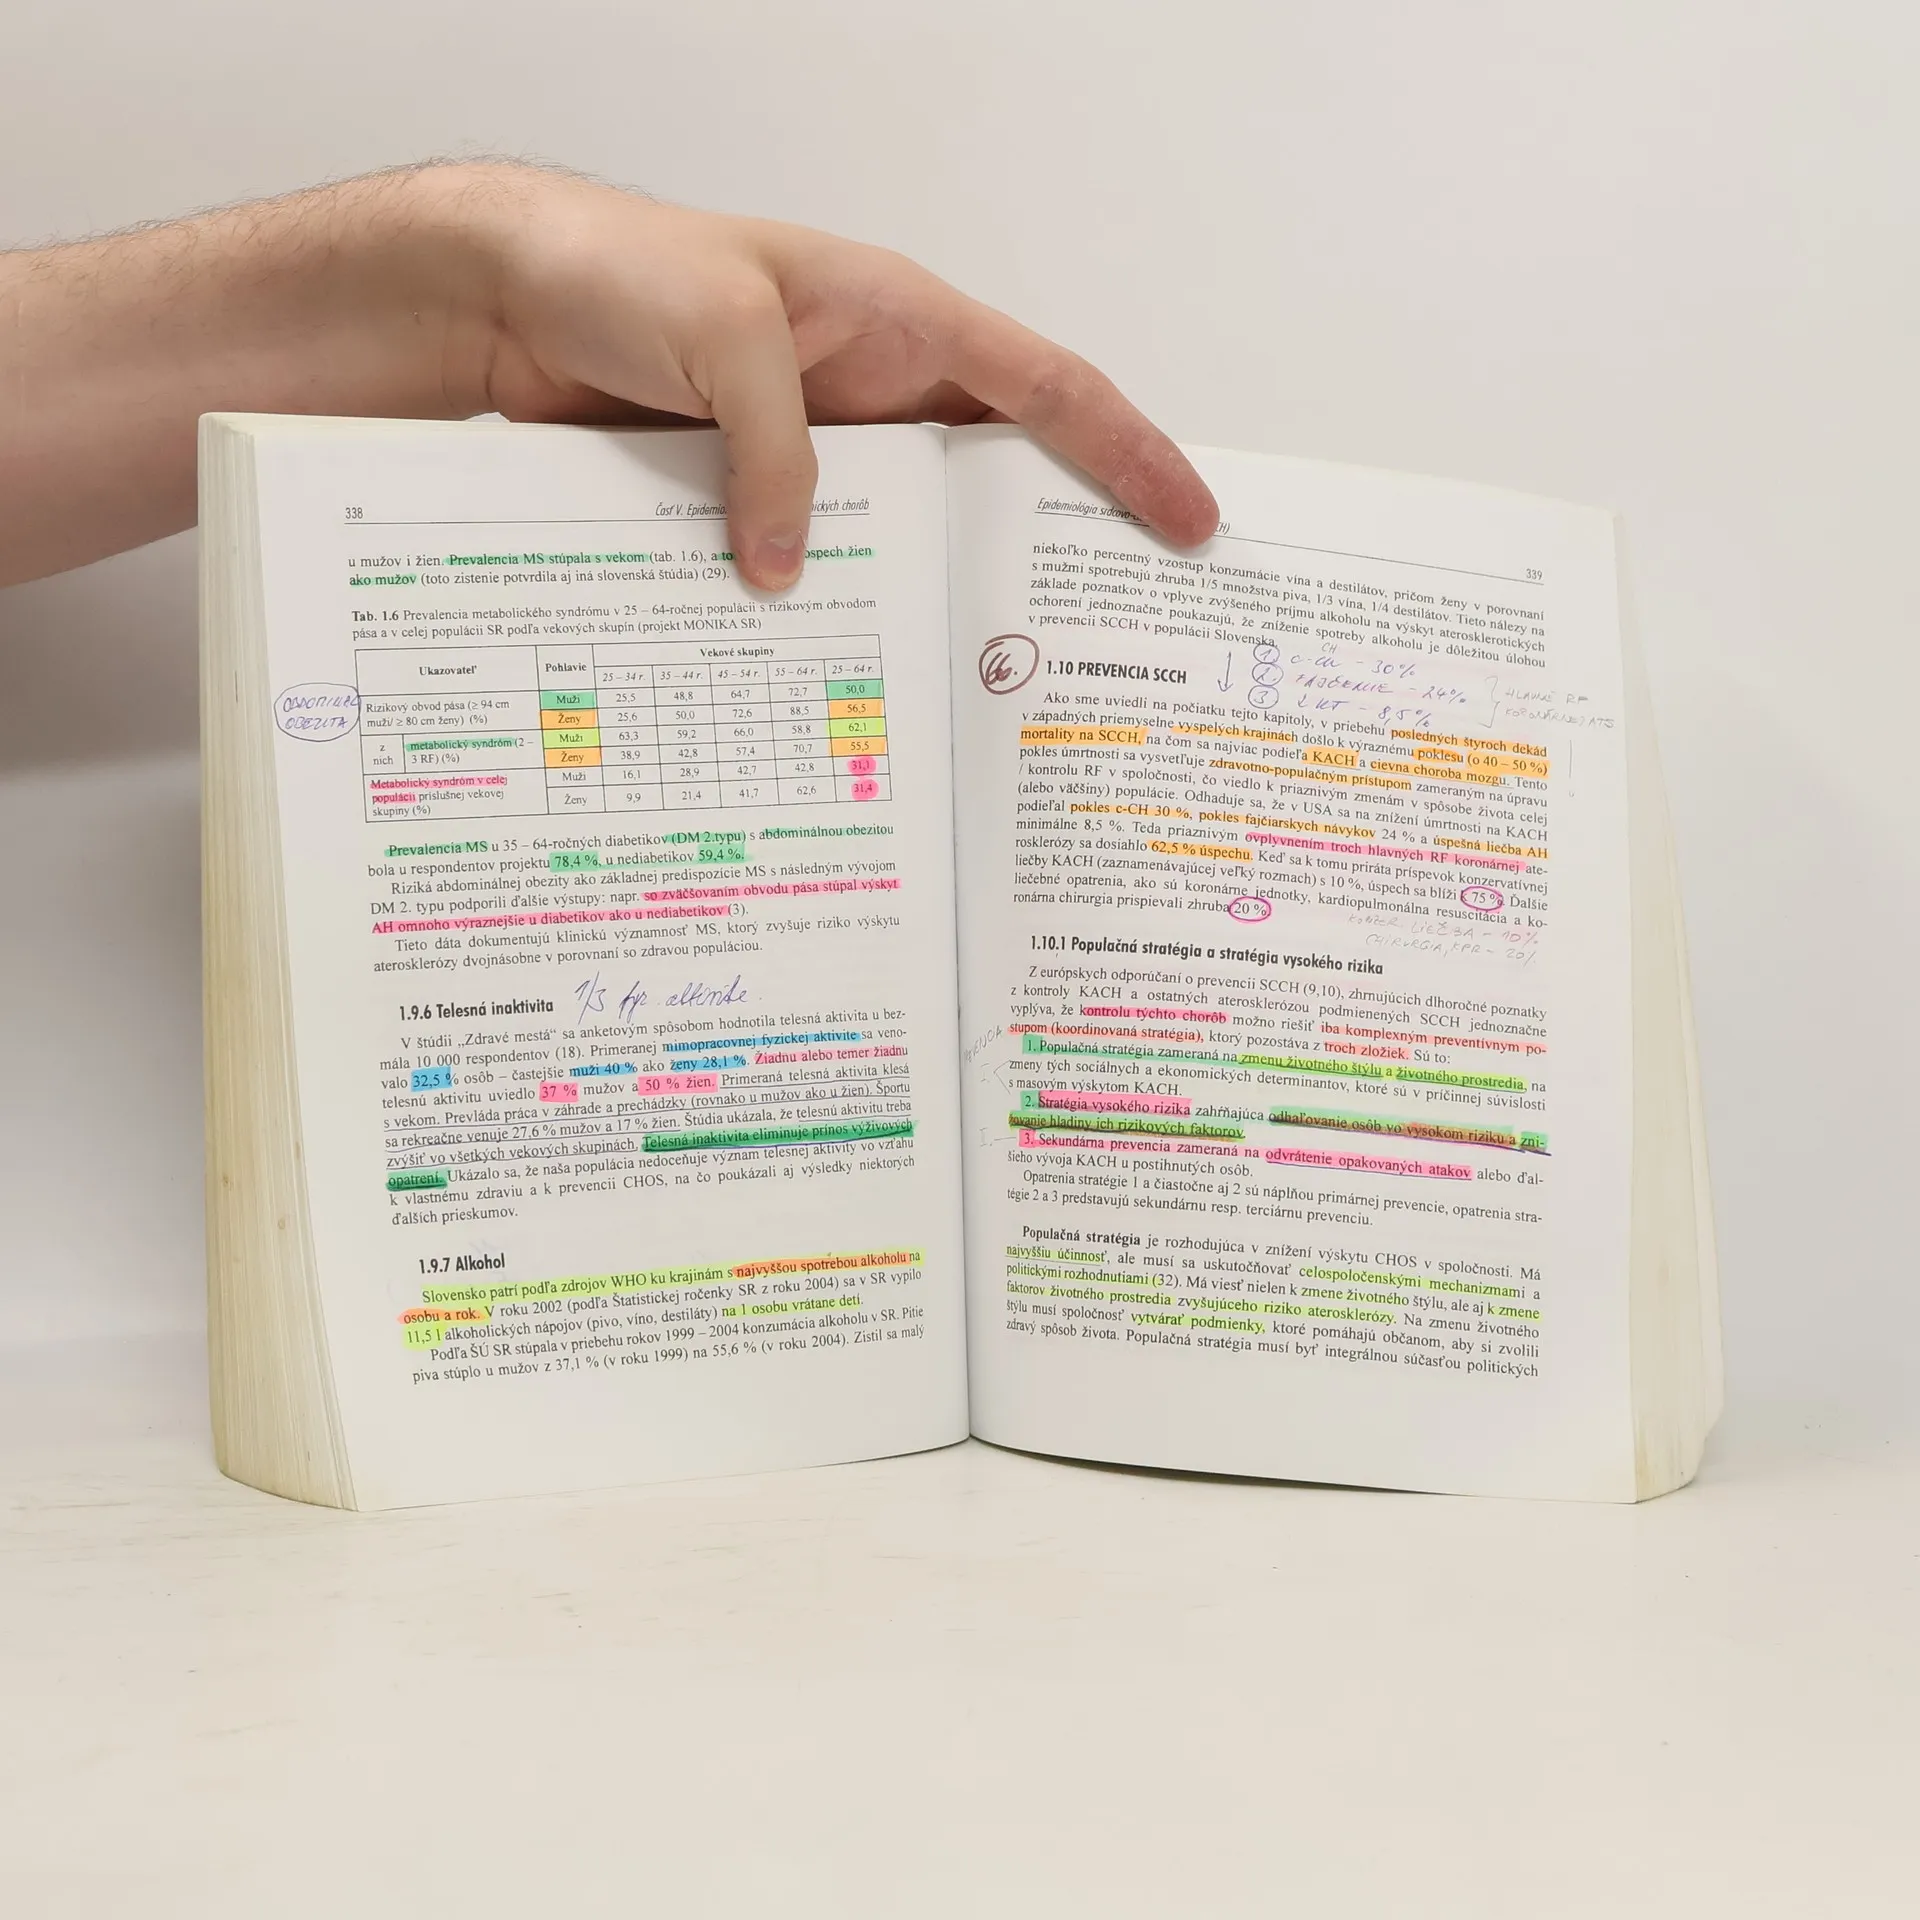 338
Časť V. Epidemio
nických chorôb
u mužov i žien. Prevalencia MS stúpala s vekom (tab. 1.6), a to
ospech žien
ako mužov (toto zistenie potvrdila aj iná slovenská štúdia) (29).
Tab. 1.6 Prevalencia metabolického syndrómu v 25 – 64-ročnej populácii s rizikovým obvodom
pása a v celej populácii SR podľa vekových skupín (projekt MONIKA SR)
Ukazovateľ Pohlavie Vekové skupiny
25 – 34 r. 35 – 44 r. 45 – 54 r. 55 – 64 r. 25 – 64 r.
OBEZITA
Rizikový obvod pása (≥ 94 cm
muži/ ≥ 80 cm ženy) (%)
Muži 25,5 48,8 64,7 72,7 50,0
Ženy 25,6 50,0 72,6 88,5 56,5
z
nich
metabolický syndróm (2 –
3 RF) (%)
Muži 63,3 59,2 66,0 58,8 62,1
Ženy 38,9 42,8 57,4 70,7 55,5
Metabolický syndróm v celej
populácii príslušnej vekovej
skupiny (%)
Muži 16,1 28,9 42,7 42,8 31,1
Ženy 9,9 21,4 41,7 62,6 31,4
Prevalencia MS u 35 – 64-ročných diabetikov (DM 2.typu) s abdominálnou obezitou
bola u respondentov projektu 78,4 %, u nediabetikov 59,4 %.
Riziká abdominálnej obezity ako základnej predispozície MS s následným vývojom
DM 2. typu podporili ďalšie výstupy: napr. so zväčšovaním obvodu pása stúpal výskyt
AH omnoho výraznejšie u diabetikov ako u nediabetikov (3).
Tieto dáta dokumentujú klinickú významnosť MS, ktorý zvyšuje riziko výskytu
aterosklerózy dvojnásobne v porovnaní so zdravou populáciou.
1.9.6 Telesná inaktivita 1/3 fyz.
V štúdii „Zdravé mestá“ sa anketovým spôsobom hodnotila telesná aktivita u bez-
mála 10 000 respondentov (18). Primeranej mimopracovnej fyzickej aktivite sa veno-
valo 32,5 % osôb – častejšie muži 40 % ako ženy 28,1 %. Žiadnu alebo temer žiadnu
telesnú aktivitu uviedlo 37 % mužov a 50 % žien. Primeraná telesná aktivita klesá
s vekom. Prevláda práca v záhrade a prechádzky (rovnako u mužov ako u žien). Športu
sa rekreačne venuje 27,6 % mužov a 17 % žien. Štúdia ukázala, že telesnú aktivitu treba
zvýšiť vo všetkých vekových skupinách. Telesná inaktivita eliminuje prínos výživových
opatrení. Ukázalo sa, že naša populácia nedoceňuje význam telesnej aktivity vo vzťahu
k vlastnému zdraviu a k prevencii CHOS, na čo poukázali aj výsledky niektorých
ďalších prieskumov.
1.9.7 Alkohol
Slovensko patrí podľa zdrojov WHO ku krajinám s najvyššou spotrebou alkoholu na
osobu a rok. V roku 2002 (podľa Štatistickej ročenky SR z roku 2004) sa v SR vypilo
11,5 l alkoholických nápojov (pivo, víno, destiláty) na 1 osobu vrátane detí.
Podľa ŠÚ SR stúpala v priebehu rokov 1999 – 2004 konzumácia alkoholu v SR. Pitie
piva stúplo u mužov z 37,1 % (v roku 1999) na 55,6 % (v roku 2004). Zistil sa malý
Epidemiológia srdcovo-
CH)
339
niekoľko percentný vzostup konzumácie vína a destilátov, pričom ženy v porovnaní
s mužmi spotrebujú zhruba 1/5 množstva piva, 1/3 vína, 1/4 destilátov. Tieto nálezy na
základe poznatkov o vplyve zvýšeného príjmu alkoholu na výskyt aterosklerotických
ochorení jednoznačne poukazujú, že zníženie spotreby alkoholu je dôležitou úlohou
v prevencii SCCH v populácii Slovenska.
66.
1.10 PREVENCIA SCCH
1 c-CH – 30%
2 FAJČENIE – 24%
3 – 8,5%
HLAVNÉ RF
Ako sme uviedli na počiatku tejto kapitoly, v priebehu posledných štyroch dekád
v západných priemyselne vyspelých krajinách došlo k výraznému poklesu (o 40 – 50 %)
mortality na SCCH, na čom sa najviac podieľa KACH a cievna choroba mozgu. Tento
pokles úmrtnosti sa vysvetľuje zdravotno-populačným prístupom zameraným na úpravu
/ kontrolu RF v spoločnosti, čo viedlo k priaznivým zmenám v spôsobe života celej
(alebo väčšiny) populácie. Odhaduje sa, že v USA sa na znížení úmrtnosti na KACH
podieľal pokles c-CH 30 %, pokles fajčiarskych návykov 24 % a úspešná liečba AH
minimálne 8,5 %. Teda priaznivým ovplyvnením troch hlavných RF koronárnej ate-
rosklerózy sa dosiahlo 62,5 % úspechu. Keď sa k tomu priráta príspevok konzervatívnej
liečby KACH (zaznamenávajúcej veľký rozmach) s 10 %, úspech sa blíži k 75 %. Ďalšie
liečebné opatrenia, ako sú koronárne jednotky, kardiopulmonálna resuscitácia a ko-
ronárna chirurgia prispievali zhruba 20 %.
KONZER. LIEČBA – 10%
CHIRURGIA, KPR – 20%
1.10.1 Populačná stratégia a stratégia vysokého rizika
Z európskych odporúčaní o prevencii SCCH (9,10), zhrnujúcich dlhoročné poznatky
z kontroly KACH a ostatných aterosklerózou podmienených SCCH jednoznačne
vyplýva, že kontrolu týchto chorôb možno riešiť iba komplexným preventívnym po-
stupom (koordinovaná stratégia), ktorý pozostáva z troch zložiek. Sú to:
1. Populačná stratégia zameraná na zmenu životného štýlu a životného prostredia, na
zmeny tých sociálnych a ekonomických determinantov, ktoré sú v príčinnej súvislosti
s masovým výskytom KACH.
2. Stratégia vysokého rizika zahŕňajúca odhaľovanie osôb vo vysokom riziku a zni-
žovanie hladiny ich rizikových faktorov.
3. Sekundárna prevencia zameraná na odvrátenie opakovaných atakov alebo ďal-
šieho vývoja KACH u postihnutých osôb.
Opatrenia stratégie 1 a čiastočne aj 2 sú náplňou primárnej prevencie, opatrenia stra-
tégie 2 a 3 predstavujú sekundárnu resp. terciárnu prevenciu.
Populačná stratégia je rozhodujúca v znížení výskytu CHOS v spoločnosti. Má
najvyššiu účinnosť, ale musí sa uskutočňovať celospoločenskými mechanizmami a
politickými rozhodnutiami (32). Má viesť nielen k zmene životného štýlu, ale aj k zmene
faktorov životného prostredia zvyšujúceho riziko aterosklerózy. Na zmenu životného
štýlu musí spoločnosť vytvárať podmienky, ktoré pomáhajú občanom, aby si zvolili
zdravý spôsob života. Populačná stratégia musí byť integrálnou súčasťou politických